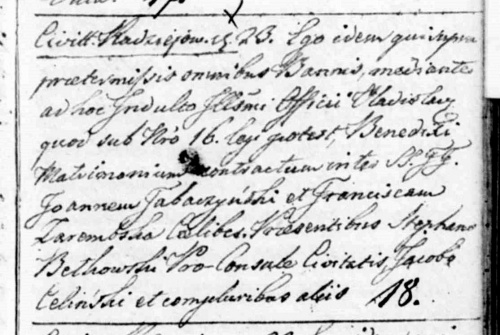 Civitt. Radziejow. 23. Ego idem qui supra
praetermissis omnibus Bannis, mediante
ad hoc Indulto Illsmi Officii Vladislav
quod sub Nro 16. legi potest, Benedixi
Matrimonium contractum inter SS. FF.
Joannem Tabaczyński et Franciscam
Zarembska Caelibes. Praesentibus Stephano
Bethowski Pro-Consule Civitatis, Jacobo
Celiński et compluribus aliis 18.